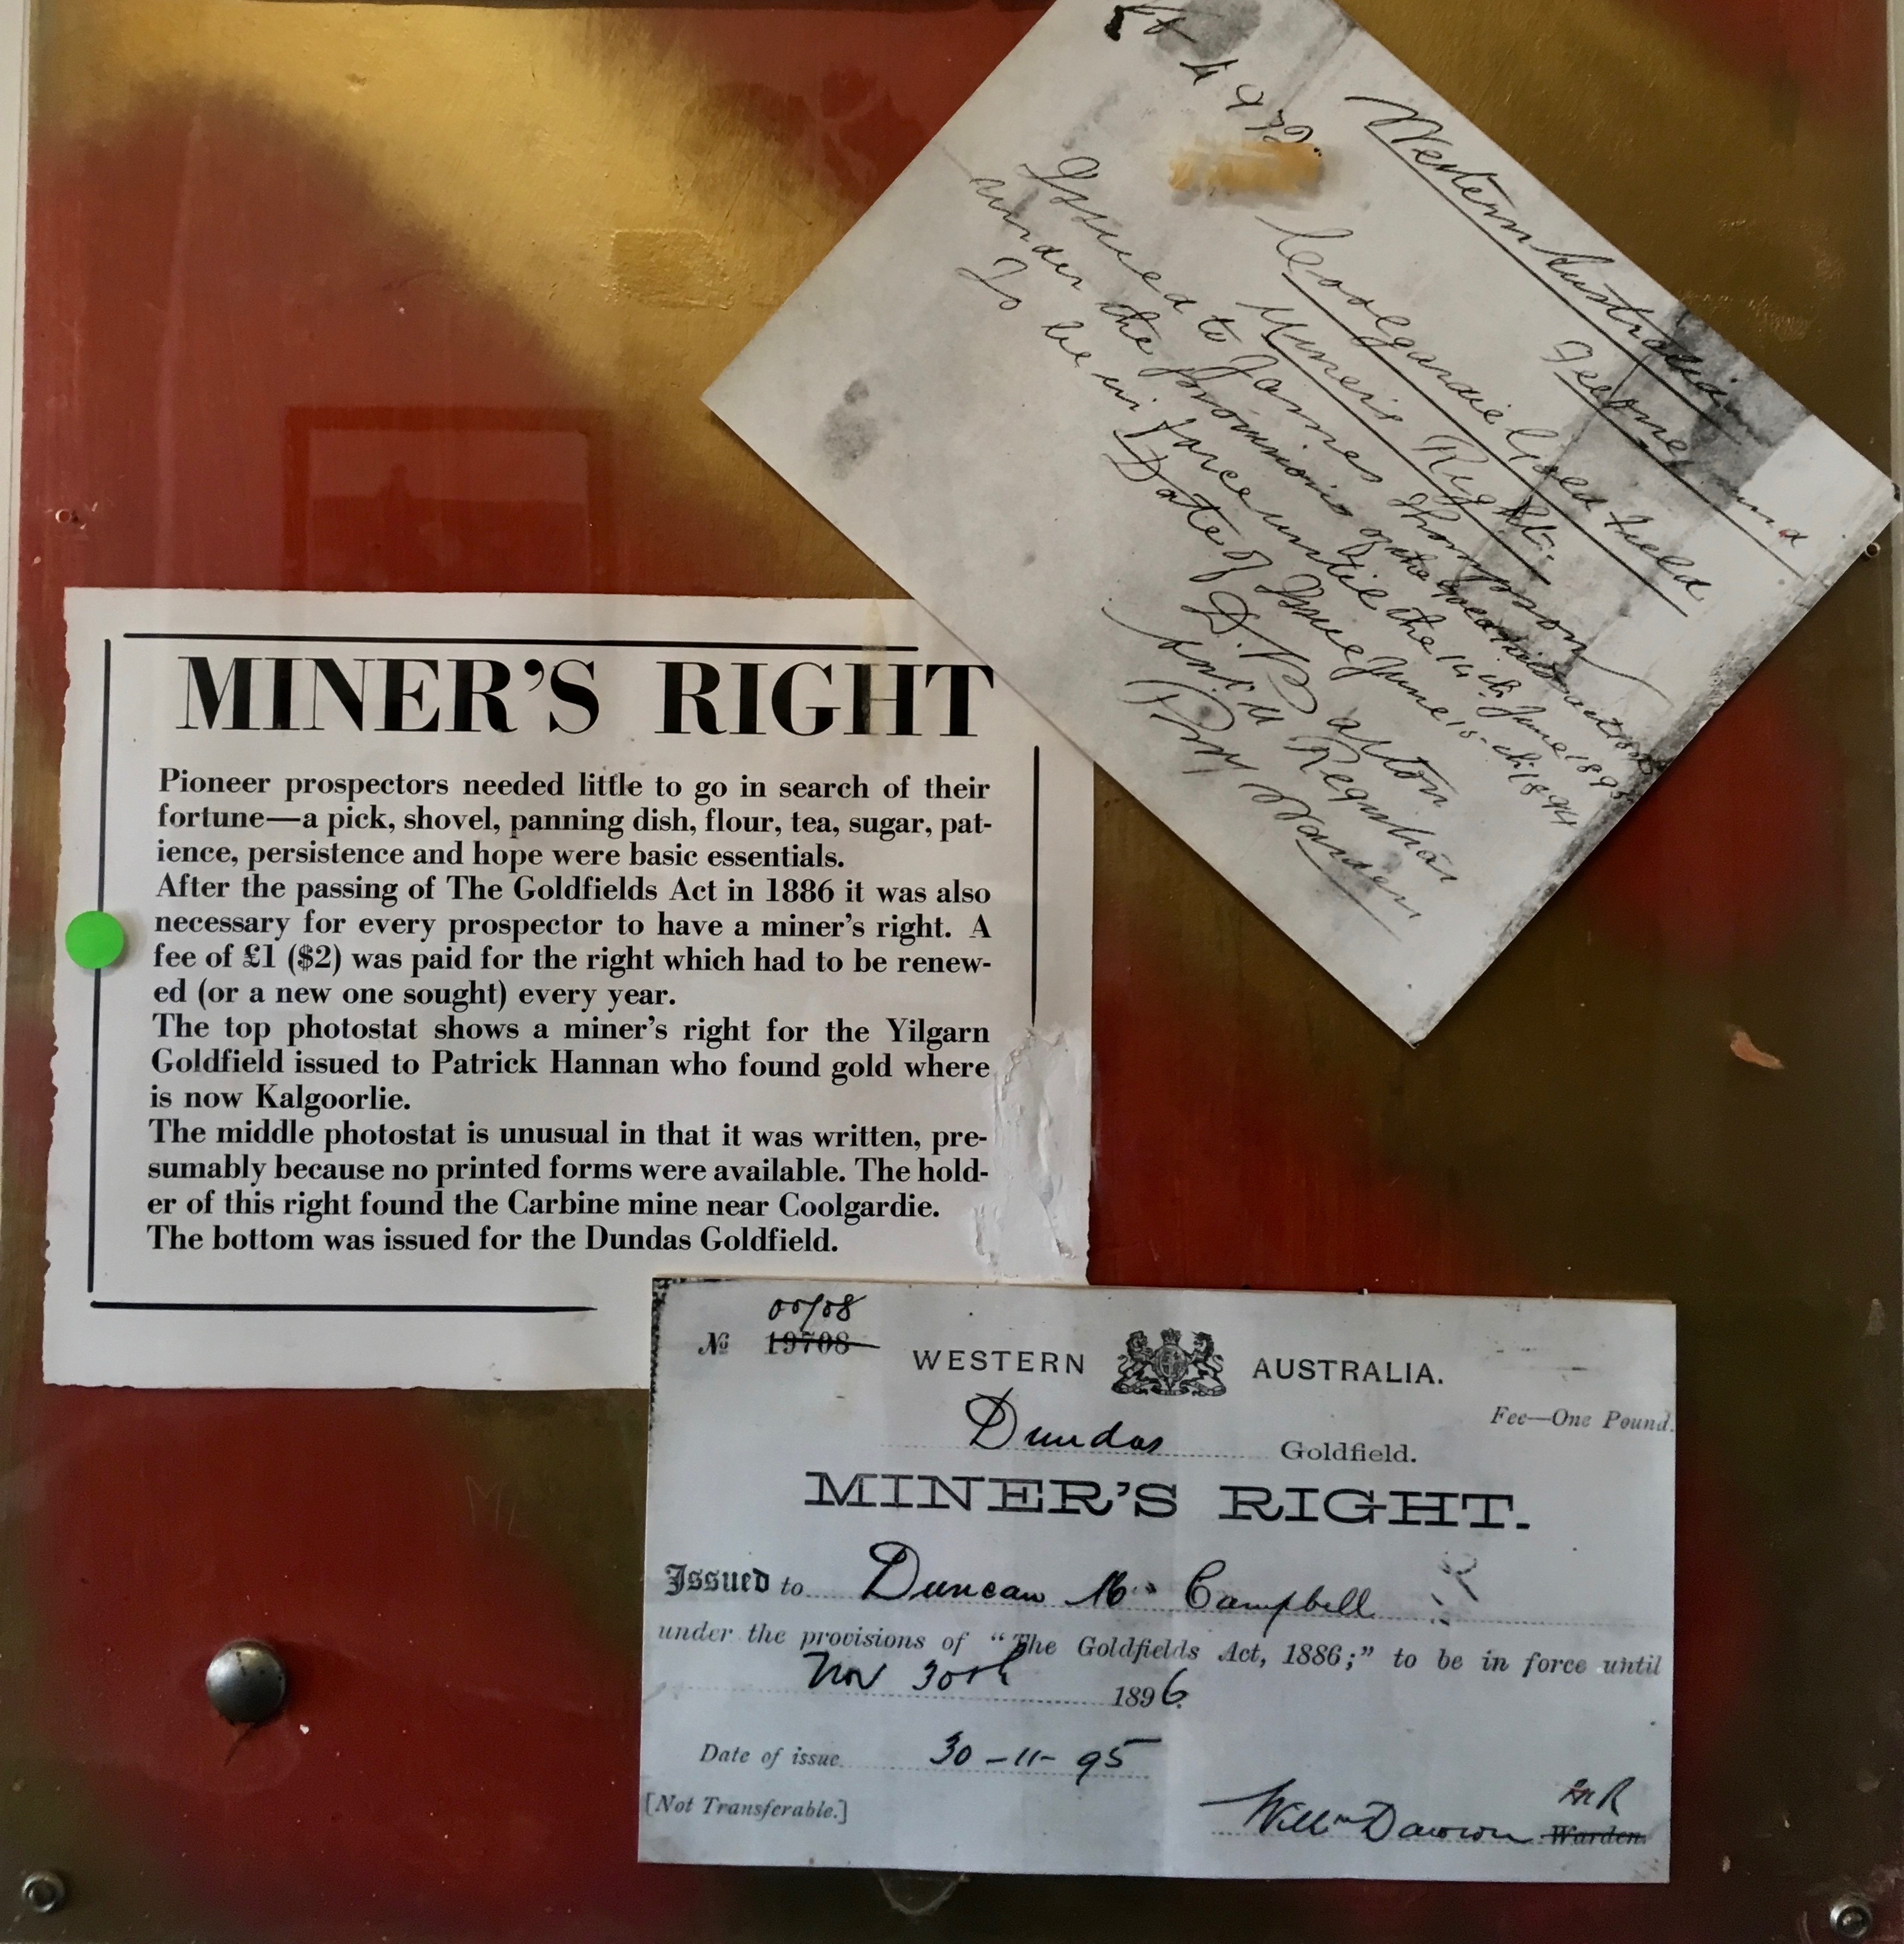 4972
Western Australia
Fee one pound
Coolgardie Gold Field
Miner's Right.
Issued to James Thompson
under the provisions of the
To be in force until the 14th June 1895
Date of Issue June 15th 1894
Mining Registrar
For Warden
MINER'S RIGHT
Pioneer prospectors needed little to go in search of their
fortune—a pick, shovel, panning dish, flour, tea, sugar, pat-
ience, persistence and hope were basic essentials.
After the passing of The Goldfields Act in 1886 it was also
necessary for every prospector to have a miner's right. A
fee of £1 ($2) was paid for the right which had to be renew-
ed (or a new one sought) every year.
The top photostat shows a miner's right for the Yilgarn
Goldfield issued to Patrick Hannan who found gold where
is now Kalgoorlie.
The middle photostat is unusual in that it was written, pre-
sumably because no printed forms were available. The hold-
er of this right found the Carbine mine near Coolgardie.
The bottom was issued for the Dundas Goldfield.
No 19708
WESTERN AUSTRALIA.
Fee—One Pound.
Dundas Goldfield.
MINER'S RIGHT.
Issued to Duncan Mc Campbell
under the provisions of "The Goldfields Act, 1886;" to be in force until
Nov 30th 1896.
Date of issue 30-11-95
[Not Transferable.]
Willm Dawson MR Warden.